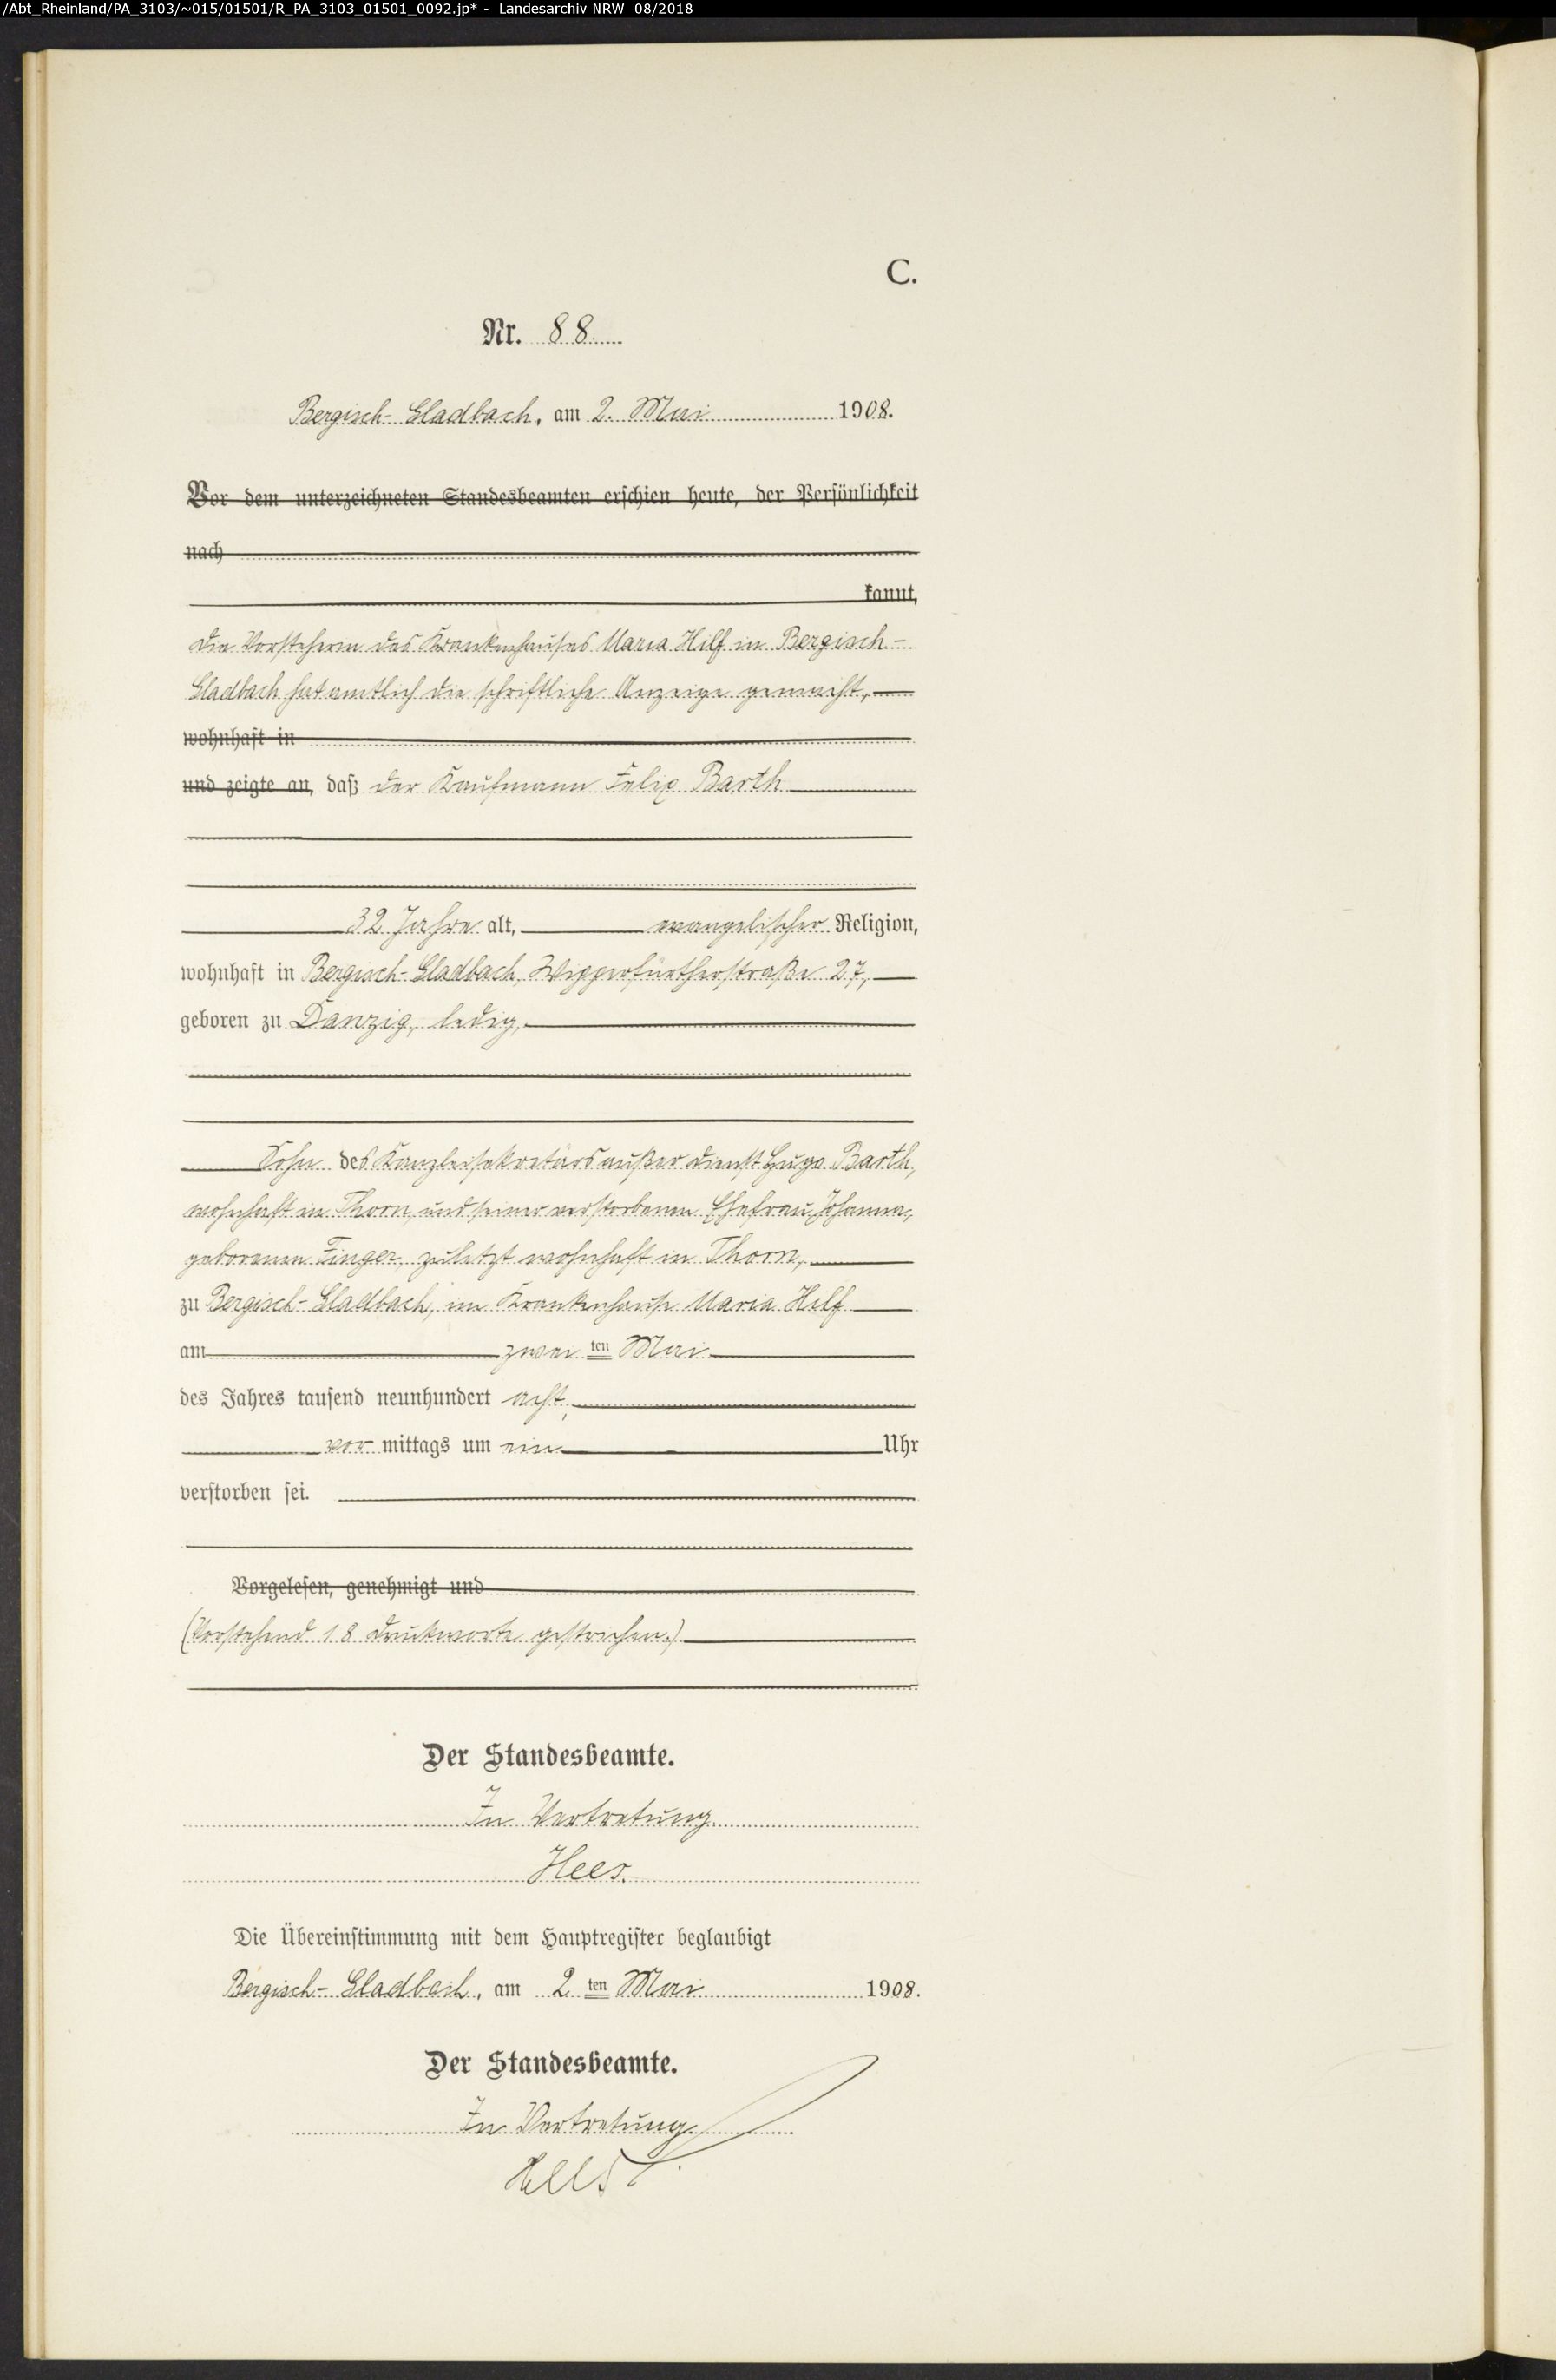 /Abt_Rheinland/PA_3103/~015/01501/R_PA_3103_01501_0092.jp* - Landesarchiv NRW 08/2018
C.
Nr. 88
Bergisch-Gladbach, am 2. Mai 1908.
Vor dem unterzeichneten Standesbeamten erschien heute, der Persönlichkeit
nach
kannt,
Die Vorsteherin des Krankenhauses Maria Hilf in Bergisch-
Gladbach hat amtlich die schriftliche Anzeige gemacht,
wohnhaft in
und zeigte an, daß der Kaufmann Felix Barth
32 Jahre alt, evangelischer Religion,
wohnhaft in Bergisch-Gladbach, Wipperfürtherstraße 27,
geboren zu Danzig, ledig,
Sohn des Kanzleisekretärs außer Dienst Hugo Barth,
wohnhaft in Thorn und seiner verstorbenen Ehefrau Johanna,
geborenen Finger, zuletzt wohnhaft in Thorn,
zu Bergisch-Gladbach, im Krankenhause Maria Hilf
am zwei ten Mai
des Jahres tausend neunhundert acht,
vor mittags um ein Uhr
verstorben sei.
Vorgelesen, genehmigt und
(Vorstehend 18 Druckworte gestrichen.)
Der Standesbeamte.
In Vertretung
Hees.
Die Übereinstimmung mit dem Hauptregister beglaubigt
Bergisch-Gladbach, am 2 ten Mai 1908.
Der Standesbeamte.
In Vertretung
Hees.